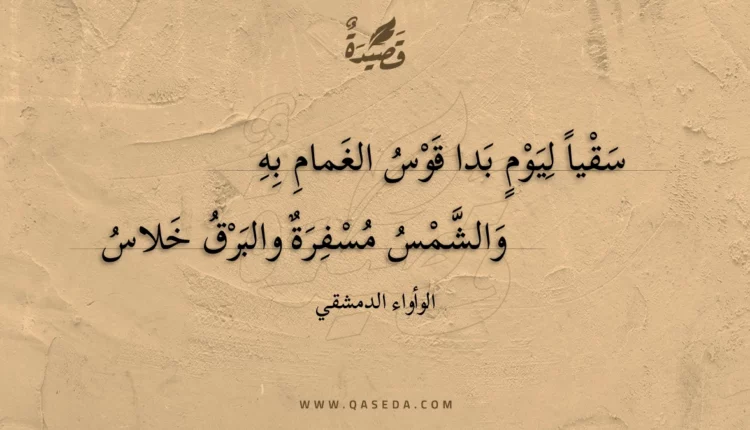 قَصِيدَةٌ
سَقْياً لِيَوْمٍ بَدا قَوْسُ الغَمامِ بِهِ
وَالشَّمْسُ مُسْفِرَةٌ والبَرْقُ خَلاسُ
الوأواء الدمشقي
WWW.QASEDA.COM